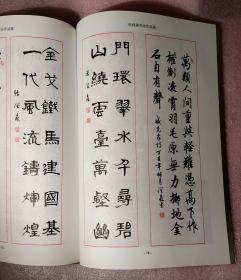 萬類人間重與輕難憑高下作
權衡凌霄羽毛原無力擲地金
石自有聲
門環翠水千尋碧
山繞雲臺萬壑幽
金戈鐵馬建國基
一代風流鑄煇煌